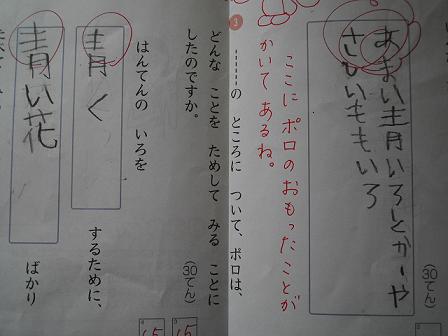 (30てん)
あわい青いろとか、や
さしいももいろ
ここにポロのおもったことが
かいてあるね。
3
………の ところに ついて、ポロは、
どんな ことを ためして みる ことに
したのですか。
(30てん)
はんてんの いろを
青く するために、
青い花 ばかり
15
15